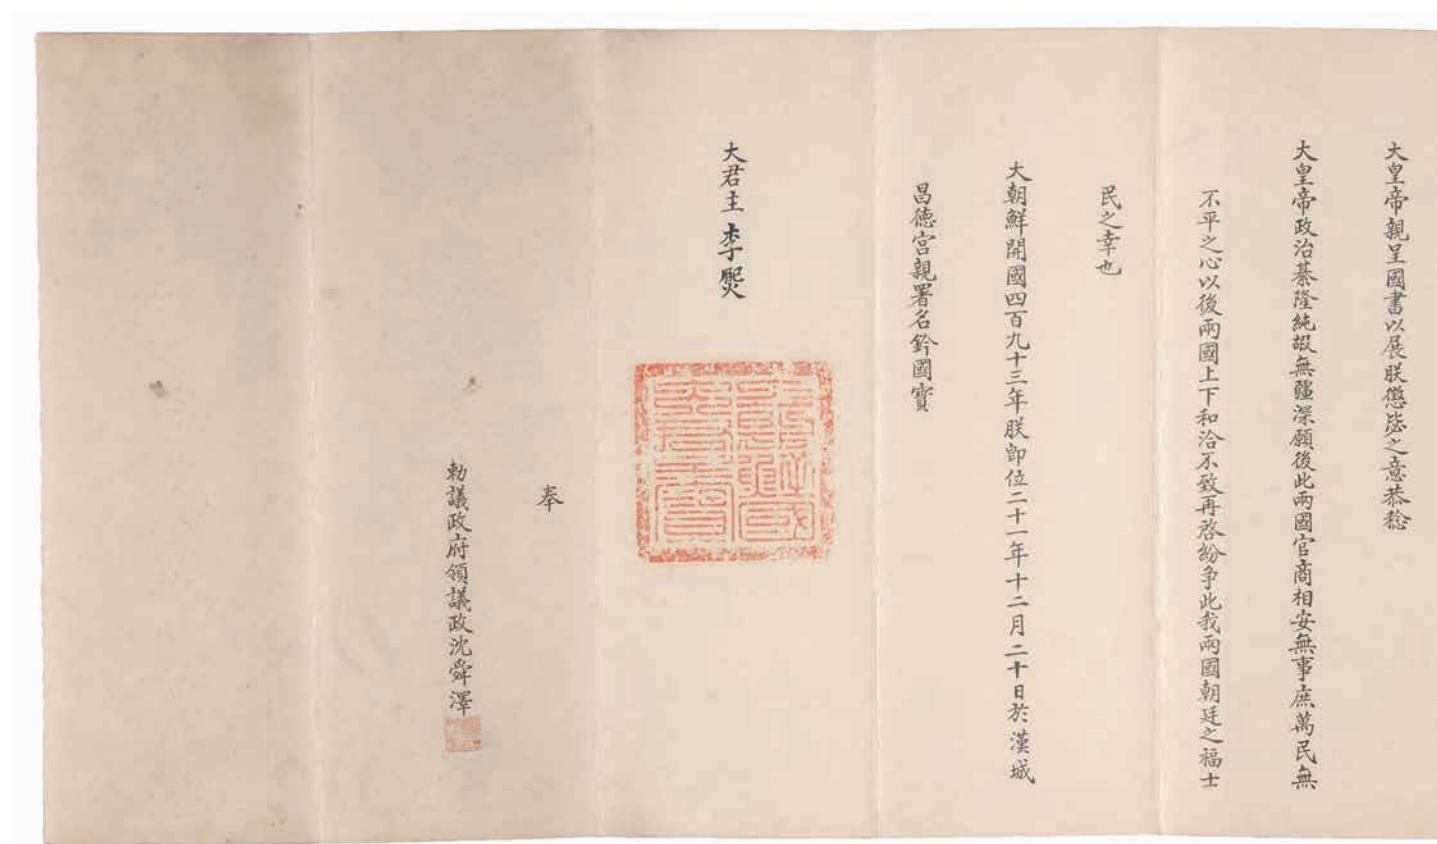 大皇帝親呈國書以展朕懲毖之意恭稔
大皇帝政治綦隆純嘏無疆深願後此兩國官商相安無事庶萬民無
不平之心以後兩國上下和洽不致再啓紛爭此我兩國朝廷之福士
民之幸也
大朝鮮開國四百九十三年朕即位二十一年十二月二十日於漢城
昌德宮親署名鈐國寶
大君主李㷩
奉
勅議政府領議政沈舜澤